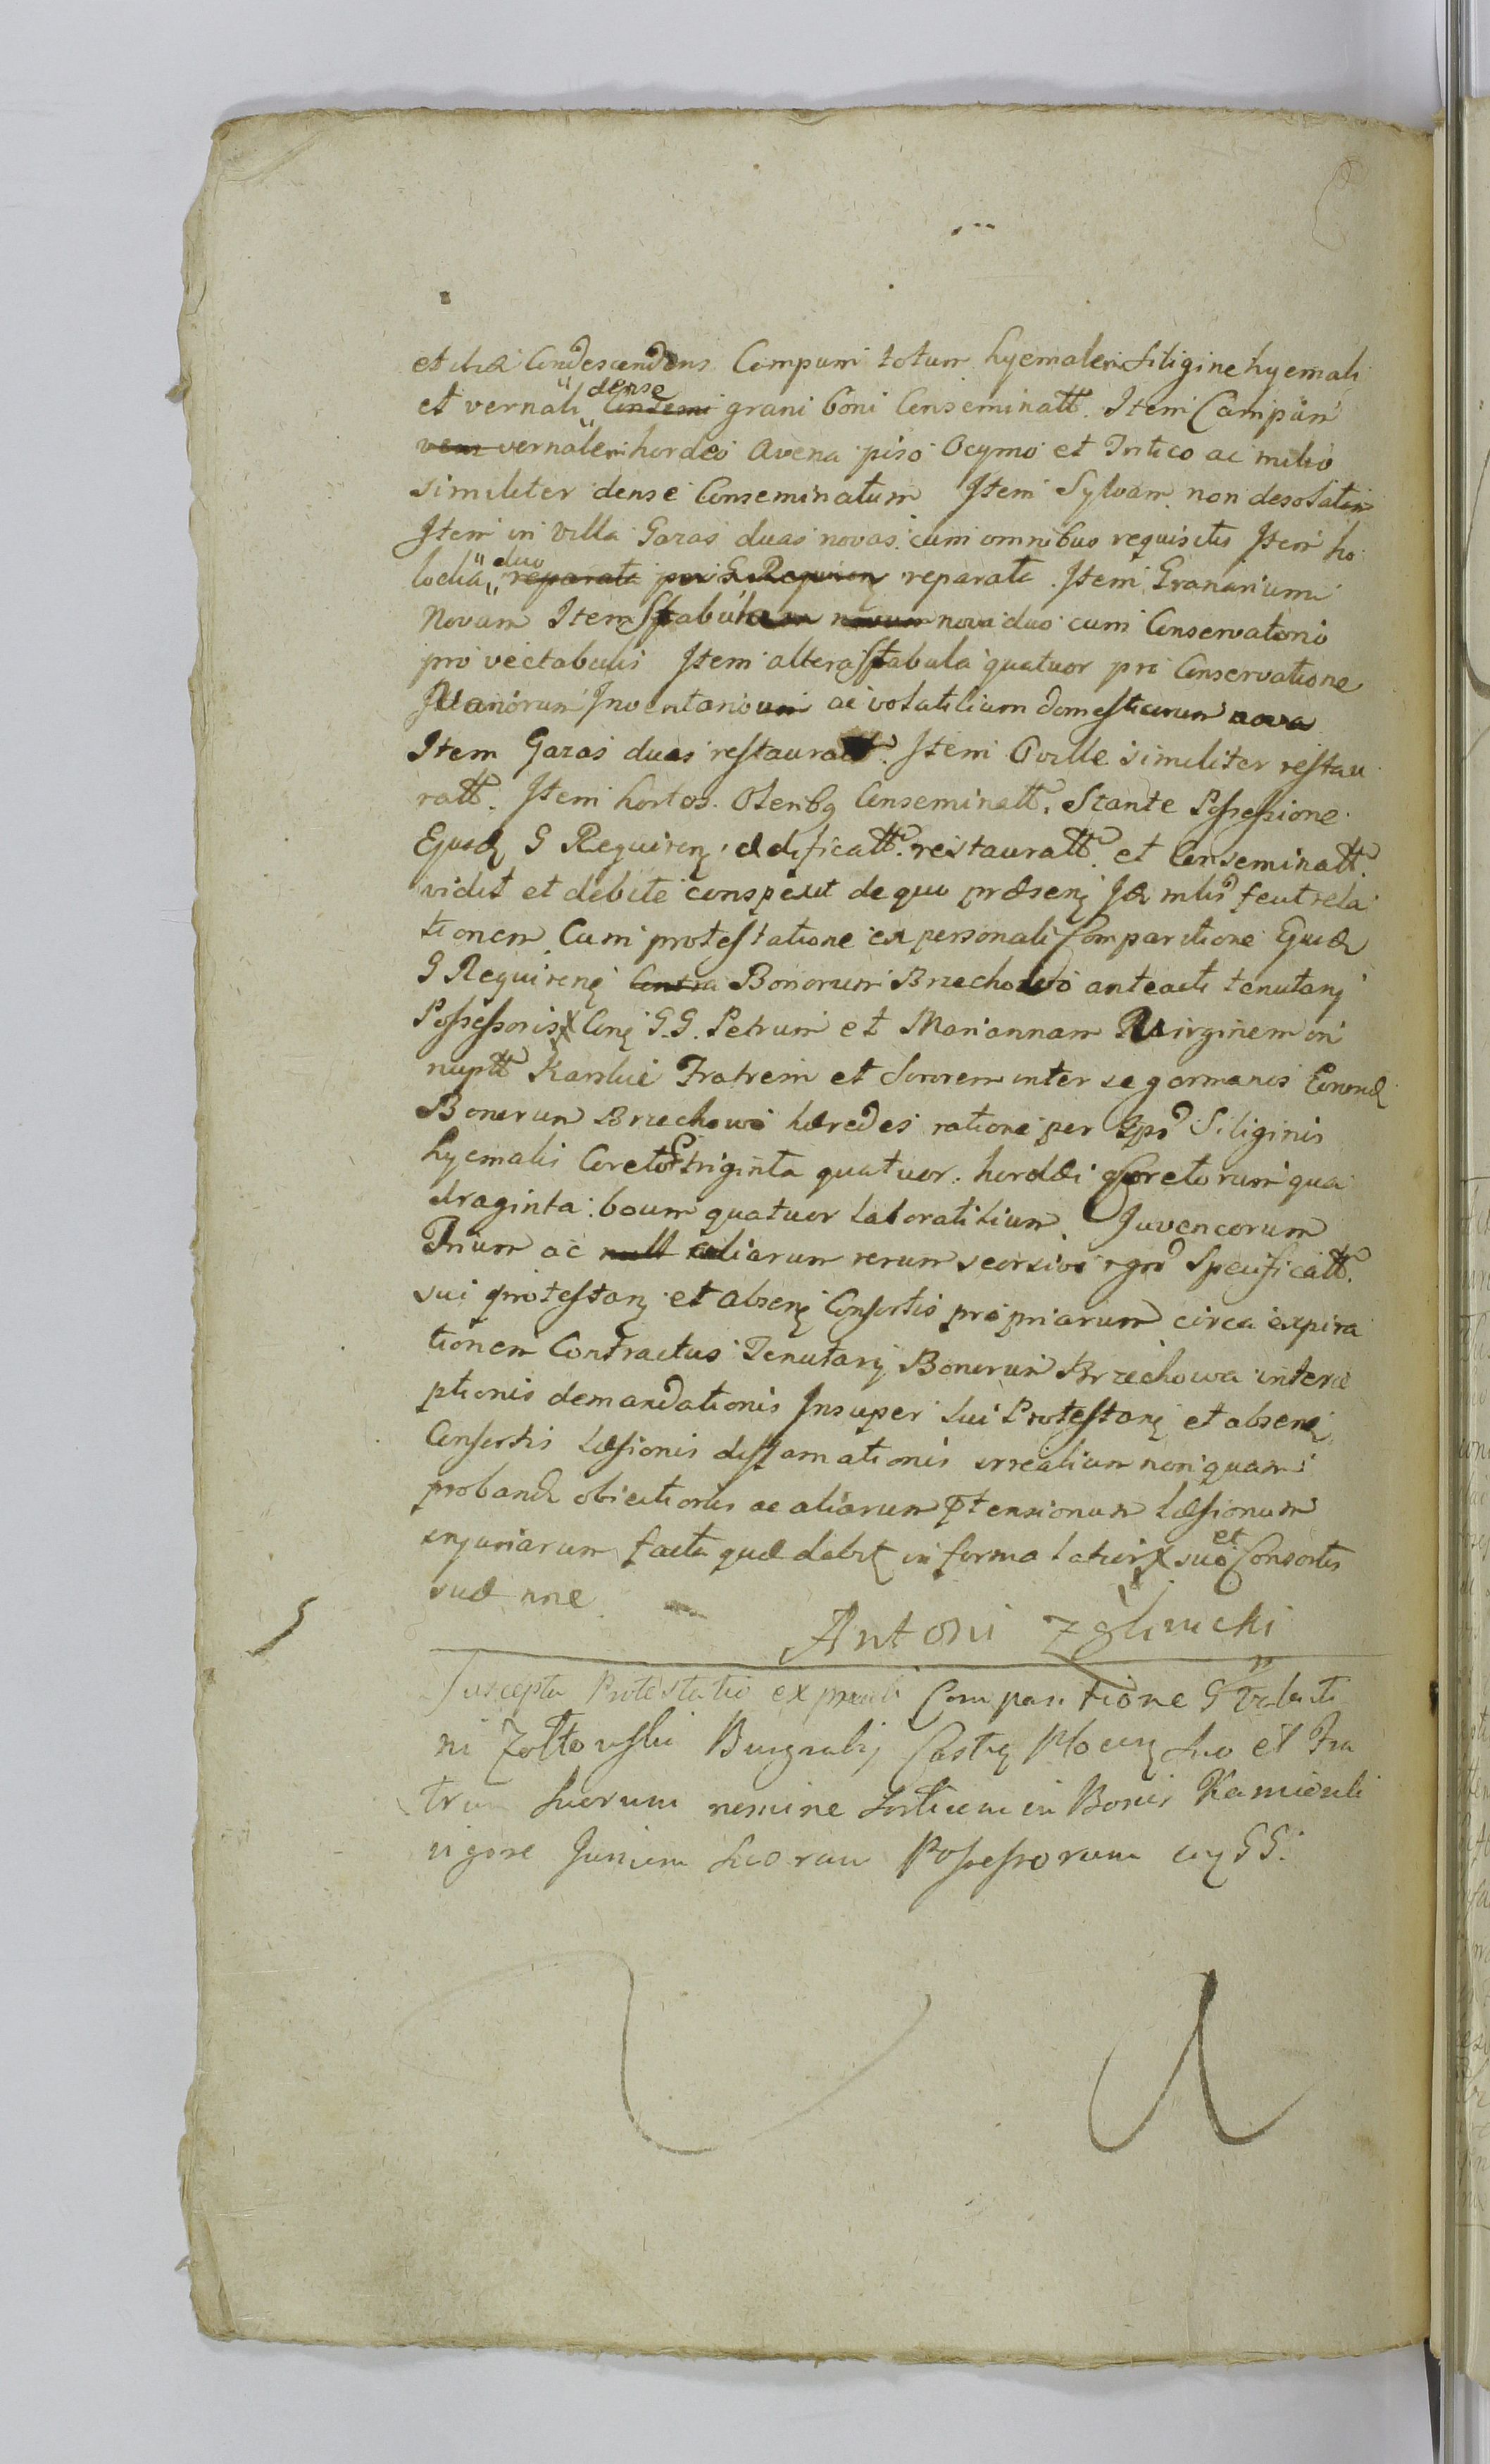 et ibid Condescendens Campum totum hyemalem Siligine hyemali
et vernali dense grani boni Conseminatt. Item Campum
vernalem hordeo Avena piso Ocymo et Tritico ac milio
similiter dense Conseminatum Item Sylvam non desolatam
Item in Villa Gazas duas novas cum omnibus requisitis Item ho
lodia duo reparata Item Granarium
Novum Item Stabula nova duo cum Conservatorio
pro vectabulis Item altera Stabula quatuor pro Conservatione
Inventario ac volatilium domesticorum nova
Item Gazas duas restauratt. Item Ovile similiter restau
ratt. Item hortos Oleribq Conseminatt. Stante Possessione
Ejusd G Requirenę ædificatt. restauratt. et Conseminatt.
vidit et debite conspexit de quo præsenę Id mlis fecit rela
tionem Cum protestatione ex personali Comparitione Ejusd
G Requirenę Bonorum Brzechowo anteacti tenutarij
Possessoris Conę G.G. Petrum et Mariannam Virginem in
nuptt Karskie Fratrem et Sororem inter se germanos Eorund
Bonorum Brzechowo hæredes ratione per Ipos Siliginis
hyemalis Coretor triginta quatuor hordæi Coretorum qua
draginta boum quatuor laboratilium Juvencorum
Trium ac aliarum rerum seorsivo rgro Specificatt.
sui protestanę et absenę Consortis propriarum circa expira
tionem Contractus Tenutarij Bonorum Brzechowa interce
ptionis demandationis Insuper sui Protestanę et absenę
Consortis læsionis diffamationis irrealium nonquam
proband obiectionis ac aliarum ptensionum læsionum
injuriarum facta quæ debitę in forma latiori suo et Consortis
suæ nne
Antoni Zglinicki
Suscepta Protestatio ex prnali Comparitione G Valenti
ni Zołtowski Burgrabij Castrę Plocenę suo et Fra
trum suorum nomine Sortium in Bonis Kamienli
vigore Jurium suorum Possessorum conę GG.